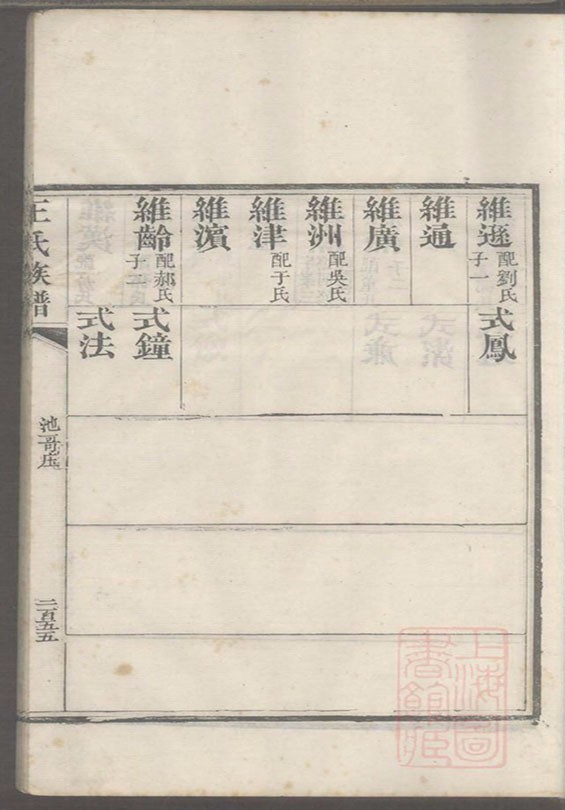 維遜 配劉氏 子一
式鳳
維通
維廣
維洲 配吳氏
維津 配于氏
維濱
維齡 配郝氏 子二
式鐘
式法
王氏族譜
池哥庄
二百五五
上海圖書館藏